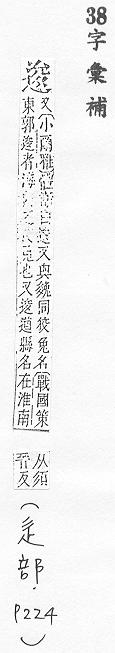 38字彙補
逡
又(小爾雅 逡又與 同狡兔名(戰國策
東郭逡者海內之狡兔也又逡遒縣名在淮南
从須
(辵部.
P224)